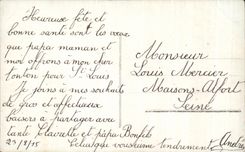 Heureuse fête et
bonne santé sont les vœux
que papa maman et
moi offrons à mon cher
tonton pour St Louis
Je joins à mes souhaits
de gros et affectueux
baisers à partager avec
tante Claudette et papa Bonfils
23/8/05 vous aime tendrement
Monsieur
Louis Mercier
Maisons-Alfort
Seine